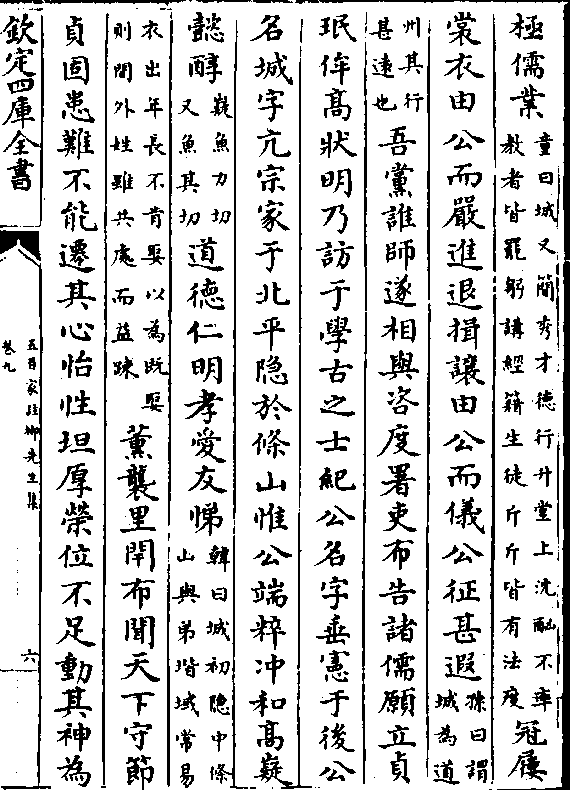 極儒業童曰城又簡秀才德行升堂上沈酗不率教者皆罷躬講經籍生徒斤斤皆有法度冠屨
裳衣由公而嚴進退揖讓由公而儀公征甚遐孫曰謂城為道
州其行甚遠也吾黨誰師遂相與咨度署吏布告諸儒願立貞
珉侔髙狀明乃訪于學古之士紀公名字垂憲于後公
名城字亢宗家于北平隐於條山惟公端粹冲和髙嶷
懿醇嶷魚力切又魚其切道德仁明孝愛友悌韓曰城初隐中條山與弟堦域常易
衣出年長不肯娶以為既娶則間外姓雖共處而益踈薰襲里閈布聞天下守節
貞固患難不能遷其心怡性坦厚榮位不足動其神為
欽定四庫全書
五百家註柳先生集
卷九
六